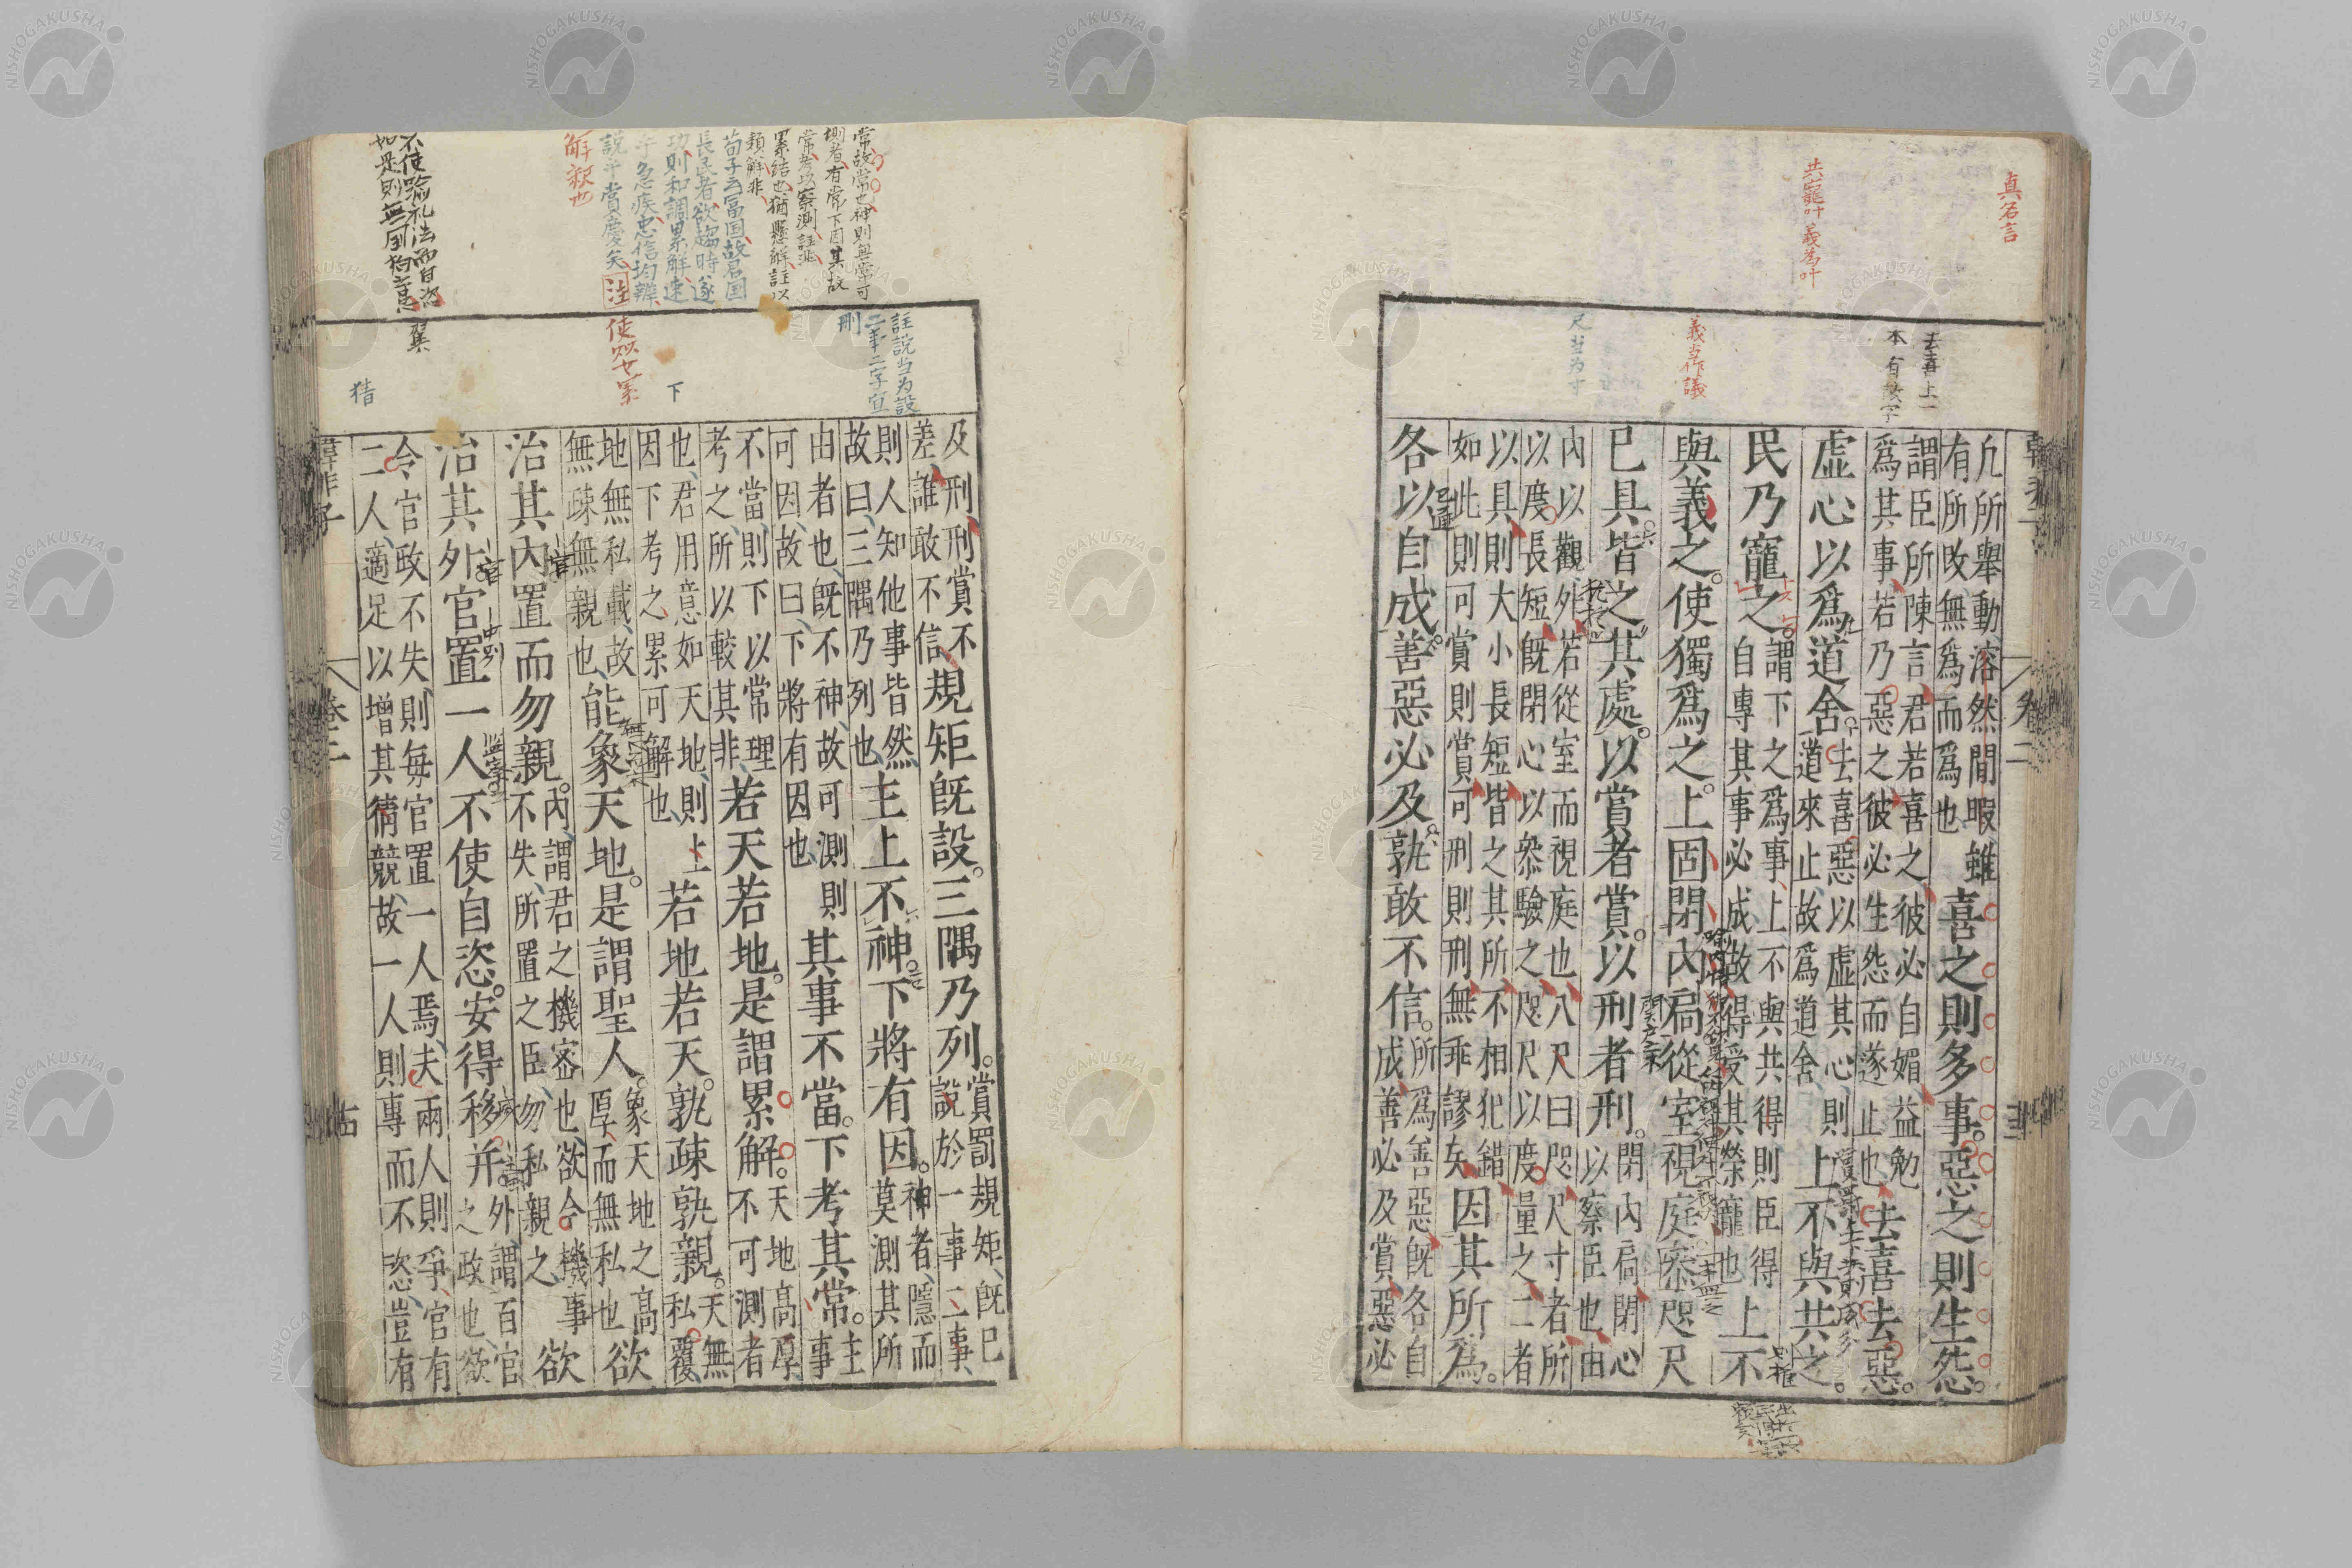 真名言
共寵叶 義為叶
去喜上一
本有故字
義当作議
尺当为寸
韓子
卷二
凢所舉動溶然閒暇雖
有所攺無爲而爲也
喜之則多事惡之則生怨
謂臣所陳言君若喜之彼必自媚益勉
爲其事若乃惡之彼必生怨而遂止也
去喜去惡
虛心以爲道舍
去喜惡以虛其心則
道來止故爲道舍
上不與共之
民乃寵之
謂下之爲事上不與共得則臣得
自專其事必成故得受其榮寵也
上不
與義之使獨爲之上固閉內扃從室視庭叅咫尺
已具皆之其處以賞者賞以刑者刑
閉內扃閉心
以察臣也由
內以觀外若從室而視庭也八尺曰咫尺寸者所
以度長短旣閉心以叅驗之咫尺以度量之二者
以具則大小長短皆之其所不相犯錯
如此則可賞則賞可刑則刑無乖謬矣
因其所爲
各以自成善惡必及孰敢不信
所爲善惡旣各自
成善必及賞惡必
常故常也神則無常可
測者有常下因其故
常考以察測註非
累結也猶懸解註以
類解非
荀子云富国故君国
長民者欲趨時遂
功則和調累解速
乎急疾忠信均辨
說乎賞慶矣
注
解釈也
不使踰礼法而自恣
如是則無同狗之患
註說当为設
二事二字宜
刪
下
猜
及刑刑賞不
差誰敢不信
規矩旣設三隅乃列
賞罰規矩旣已
說於一事二事
則人知他事皆然
故曰三隅乃列也
主上不神下將有因
神者隱而
莫測其所
由者也旣不神故可測則
可因故曰下將有因也
其事不當下考其常
主
事
不當則下以常理
考之所以較其非
若天若地是謂累解
天地高厚
不可測者
也君用意如天地則上
因下考之累可解也
若地若天孰疎孰親
天無
私覆
地無私載故
無疎無親也
能象天地是謂聖人
象天地之高
厚而無私也
欲
治其內置而勿親
內謂君之機密也欲令機事
不失所置之臣勿私親之
欲
治其外官置一人不使自恣安得移并
外謂百官
之政也欲
令官政不失則每官置一人焉夫兩人則爭官有
二人適足以增其猜競故一人則專而不恣豈有
韓非子
卷二
NISHOGAKUSHA